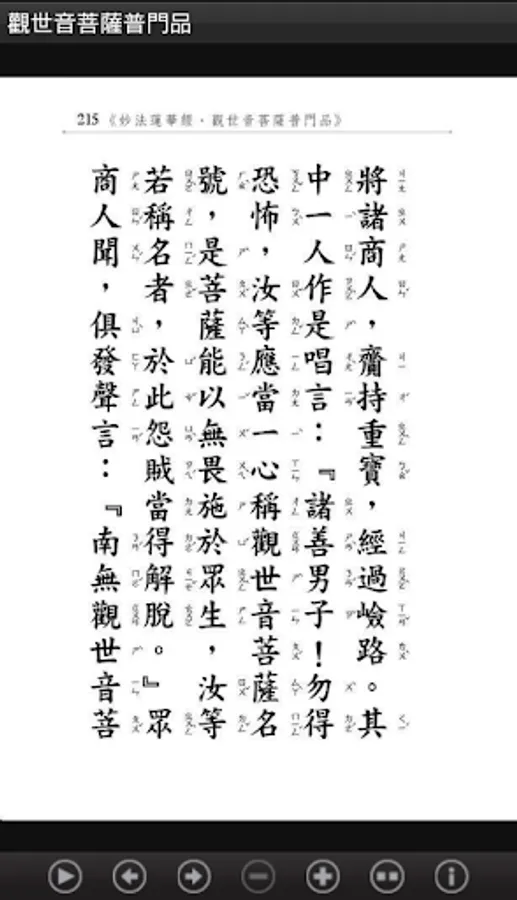 觀世音菩薩普門品
215《妙法蓮華經·觀世音菩薩普門品》
將諸商人，齎持重寶，經過嶮路。其
中一人作是唱言：『諸善男子！勿得
恐怖，汝等應當一心稱觀世音菩薩名
號，是菩薩能以無畏施於眾生，汝等
若稱名者，於此怨賊當得解脫。』眾
商人聞，俱發聲言：『南無觀世音菩